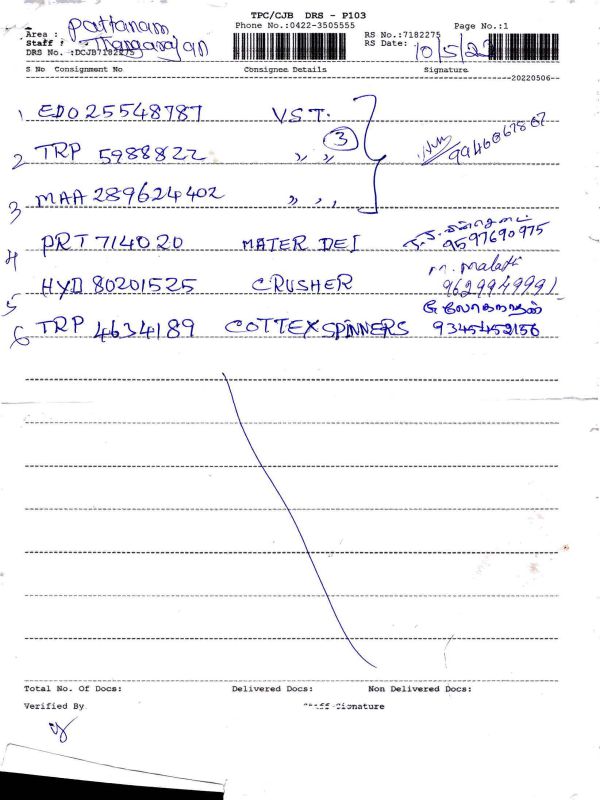 TPC/CJB DRS - P103
Phone No.:0422-3505555 Page No.:1
Area : Pattanam
Staff : Thangarajan
DRS No. :DCJB7182275
RS No.:7182275
RS Date: 10/5/22
S No Consignment No Consignee Details Signature
20220506
1 EDO 25548787 V.S.T.
2 TRP 5988822 " " 3 9946067867
3 MAA 289624402 " "
4 PRT 714020 MATER DEI 9597690975
5 HYD 80201525 CRUSHER M. Malathi 9629949991
6 TRP 4634189 COTTEXSPINNERS லோகநாதன் 9345452156
Total No. Of Docs: Delivered Docs: Non Delivered Docs:
Verified By Staff Signature